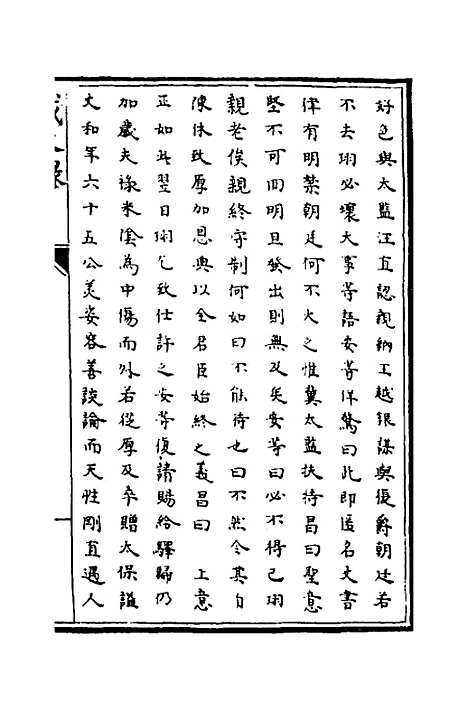 好色與太監汪直認親納王越銀謀與復爵朝廷若
不去珝必壞大事等語安等佯驚曰此即匿名文書
律有明禁朝廷何不火之惟冀太監扶持昌曰聖意
堅不可回明旦發出則無及矣安等曰必不得已珝
親老俟親終守制何如曰不能待也曰不然令其自
陳休致厚加恩典以全君臣始終之義昌曰 上意
正如此翌日珝乞致仕許之安等復請賜給驛歸仍
加歲夫祿米陰為中傷而外若從厚及卒贈太保諡
文和年六十五公美姿容善談論而天性剛直遇人